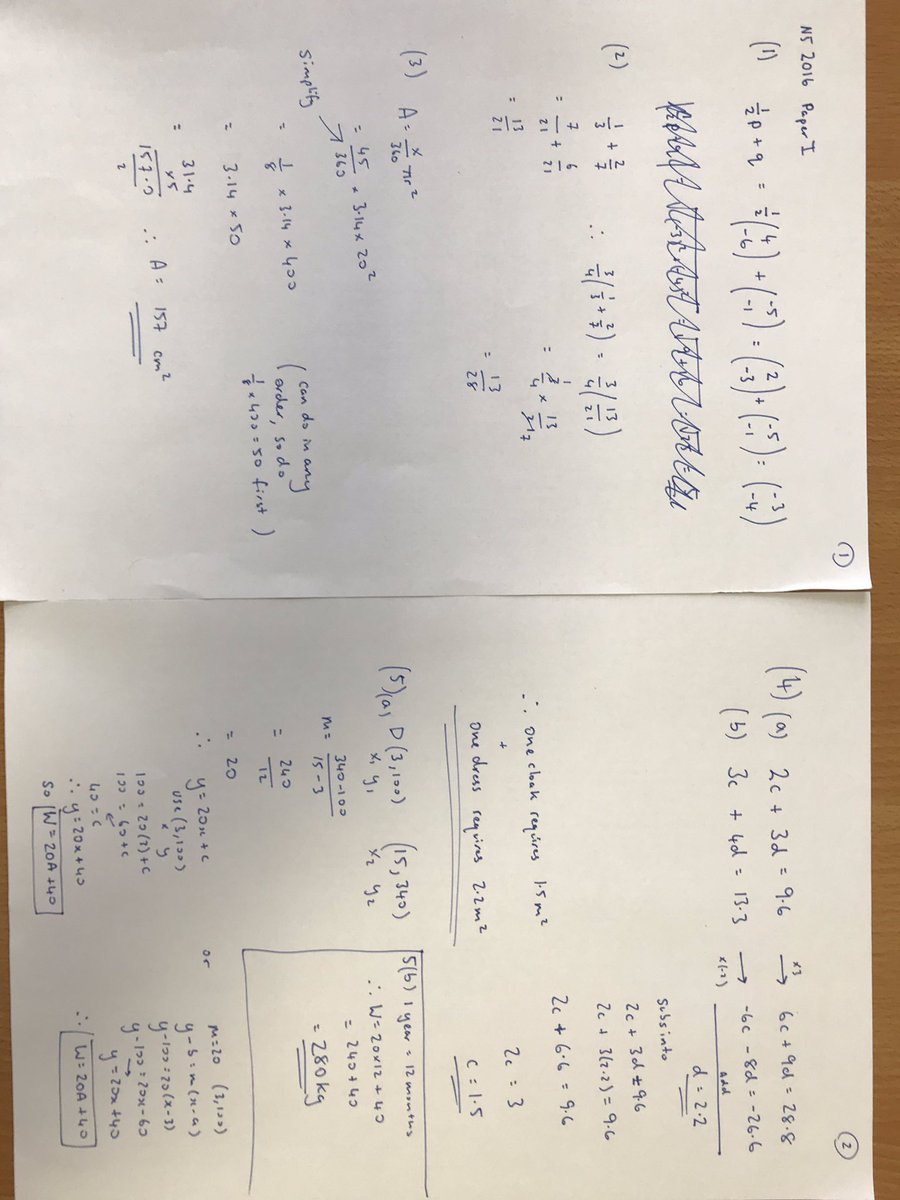 N5 2016 Paper I
①
(1) ½p + q = ½(4 -6) + (-5 -1) = (2 -3) + (-5 -1) = (-3 -4)
(2) 1/3 + 2/7 ∴ 3/4(1/3 + 2/7) = 3/4(13/21)
= 7/21 + 6/21 = 3/4 × 13/21 1 7
= 13/21 = 13/28
(3) A = x/360 πr²
= 45/360 × 3.14 × 20²
simplify
= 1/8 × 3.14 × 400
(can do in any
order, so do
1/8 × 400 = 50 first)
= 3.14 × 50
= 31.4
×5
157.0
2
∴ A = 157 cm²
②
(4) (a) 2c + 3d = 9.6 ×3→ 6c + 9d = 28.8
(b) 3c + 4d = 13.3 ×(-2)→ -6c - 8d = -26.6
add
d = 2.2
subs into
2c + 3d = 9.6
2c + 3(2.2) = 9.6
2c + 6.6 = 9.6
2c = 3
c = 1.5
∴ one cloak requires 1.5m²
+
one dress requires 2.2m²
(5)(a) D(3,100) (15,340)
x₁ y₁ x₂ y₂
m = 340-100/15-3
= 240/12
= 20
∴ y = 20x + c
use (3,100)
x y
100 = 20(3)+c
100 = 60+c
40 = c
∴ y = 20x+40
so W = 20A+40
or
m=20 (3,100)
y-b = m(x-a)
y-100 = 20(x-3)
y-100 = 20x-60
y = 20x+40
∴ W = 20A+40
5(b) 1 year = 12 months
∴ W = 20×12+40
= 240+40
= 280kg